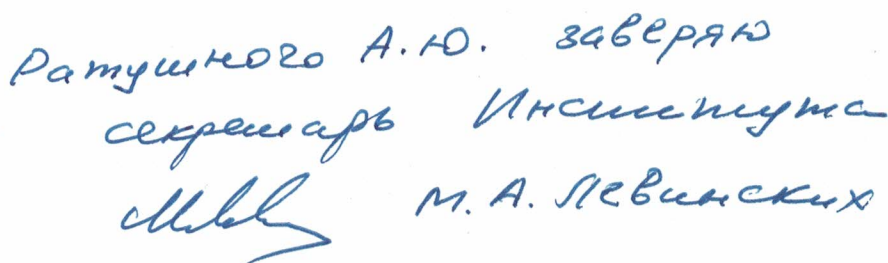 Ратушного А.Ю. заверяю
секретарь Института
М.А. Левинских